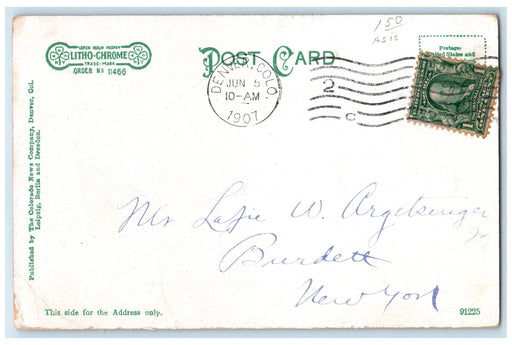 1 50
AS IS
LITHO-CHROME
TRADE-MARK
ORDER NO 11466
POST CARD
Postage:
United States and
DENVER, COLO.
JUN 5
10-AM
1907
2
C
1
Published by The Colorado News Company, Denver, Col.
Leipzig, Berlin and Dresden.
Mr W. Argetsinger
Burdett
New York
This side for the Address only.
91225